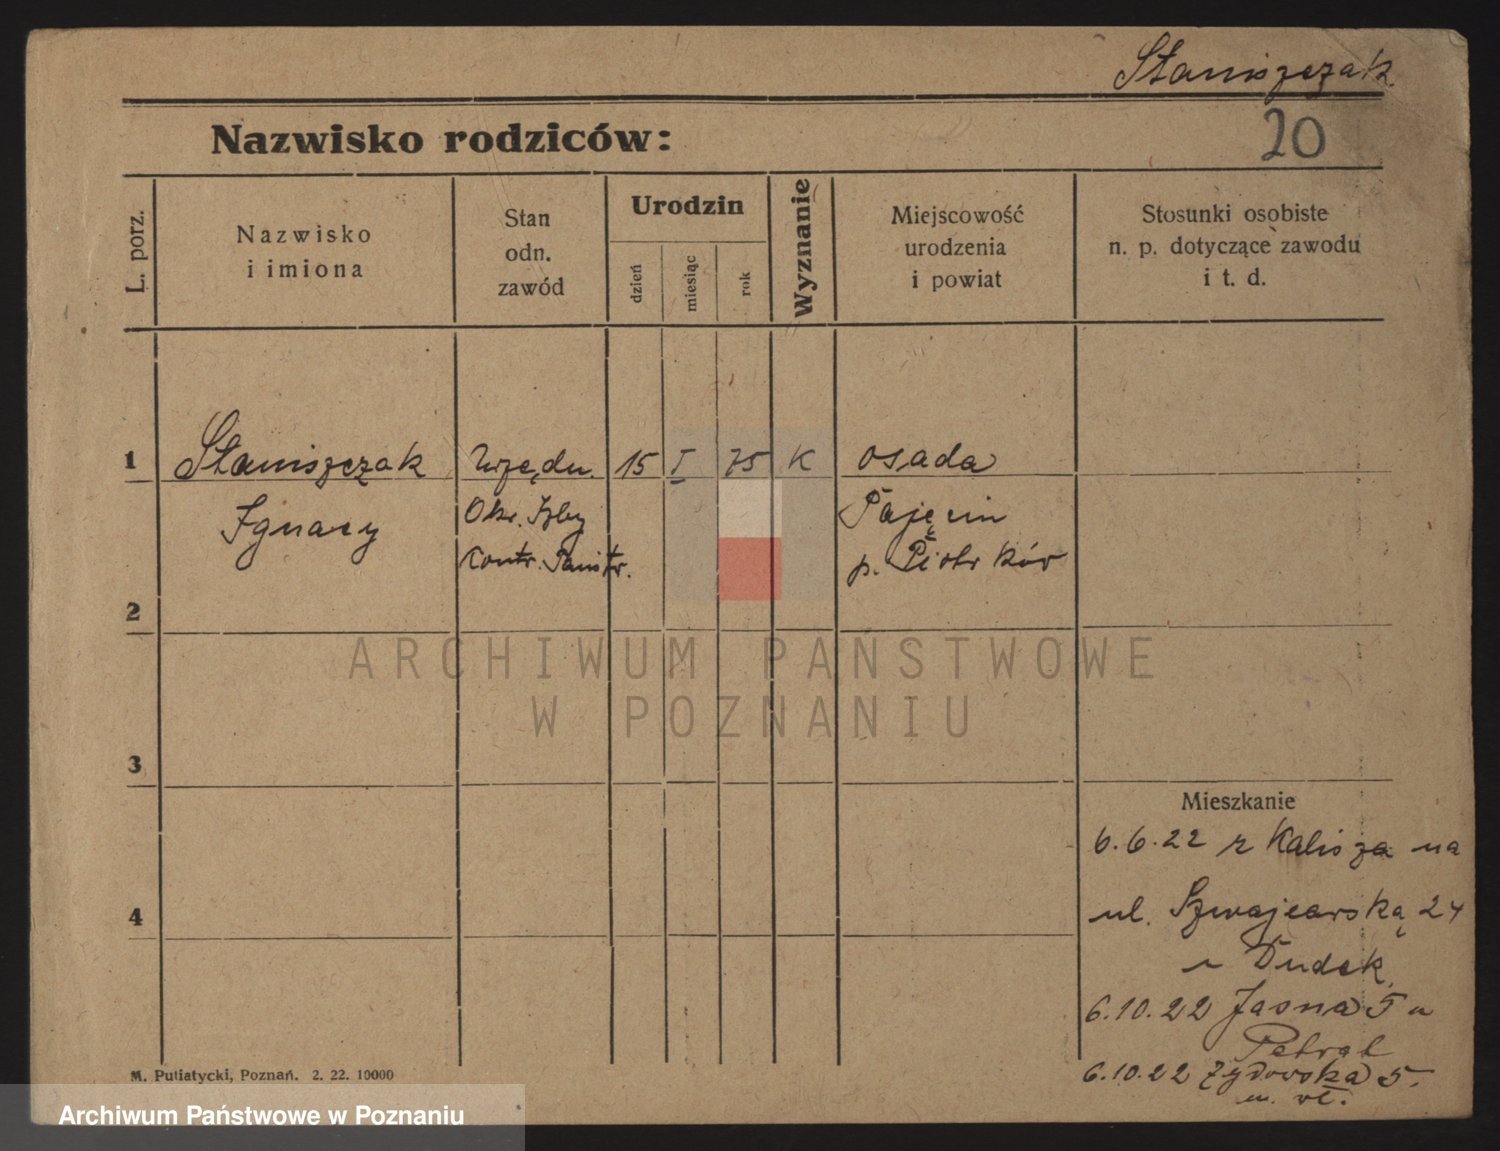 Staniszczak
20
Nazwisko rodziców:
L. porz.
Nazwisko
i imiona
Stan
odn.
zawód
Urodzin
dzień
miesiąc
rok
Wyznanie
Miejscowość
urodzenia
i powiat
Stosunki osobiste
n. p. dotyczące zawodu
i t. d.
1 Staniszczak Urzędn. 15 I 75 K osada
Ignacy Okr. Izby Pajęcin
Kontr. Państr. p. Piotrków
2
ARCHIWUM PAŃSTWOWE
W POZNANIU
3
Mieszkanie
6.6.22 z Kalisza na
4
ul. Szwajcarską 24
u Dudek
6.10.22 Jasna 5 u
6.10.22 Żydowska 5.
M. Putiatycki, Poznań. 2. 22. 10000
Archiwum Państwowe w Poznaniu